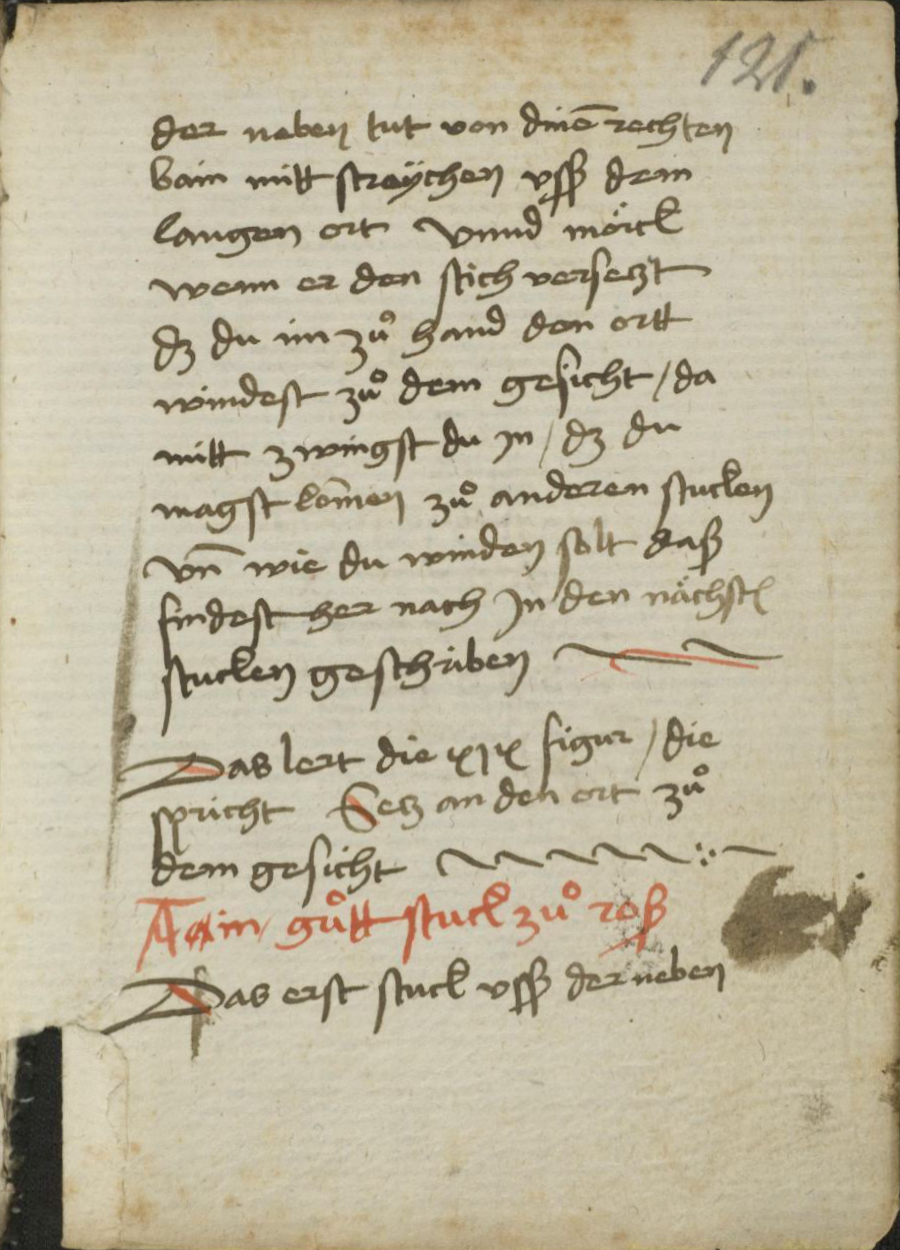 121.
der neben tut von dinē rechten
bain mitt straÿchen vsß dem
langen ort Vnnd mörck
wenn er den stich verseczt
dz du im zuͦ hand den ortt
windest zuͦ dem gesicht / da
mitt zwingst du in / dz du
magst komēn zuͦ anderen stucken
vn̄ wie du winden solt daß
findest her nach In den nächstē
stucken geschriben
Das lert die figur / die
spricht Secz an den ort zuͦ
dem gesicht
Aain guͦtt stuck zuͦ roß
Das erst stuck vsß der neben